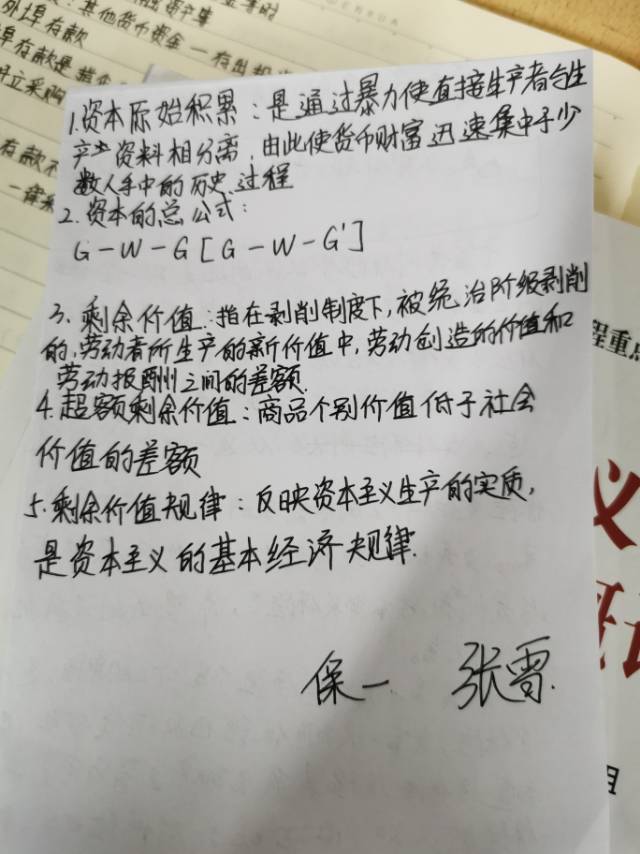 外埠存款
：其他货币资金一存出投资
1.资本原始积累：是通过暴力使直接生产者与生
产资料相分离，由此使货币财富迅速集中于少
数人手中的历史过程
2.资本的总公式：
G－W－G［G－W－G'］
3.剩余价值：指在剥削制度下，被统治阶级剥削
的，劳动者所生产的新价值中，劳动创造的价值和
劳动报酬之间的差额.
4.超额剩余价值：商品个别价值低于社会
价值的差额
5.剩余价值规律：反映资本主义生产的实质，
是资本主义的基本经济规律.
保一 张雪.
程重点
义